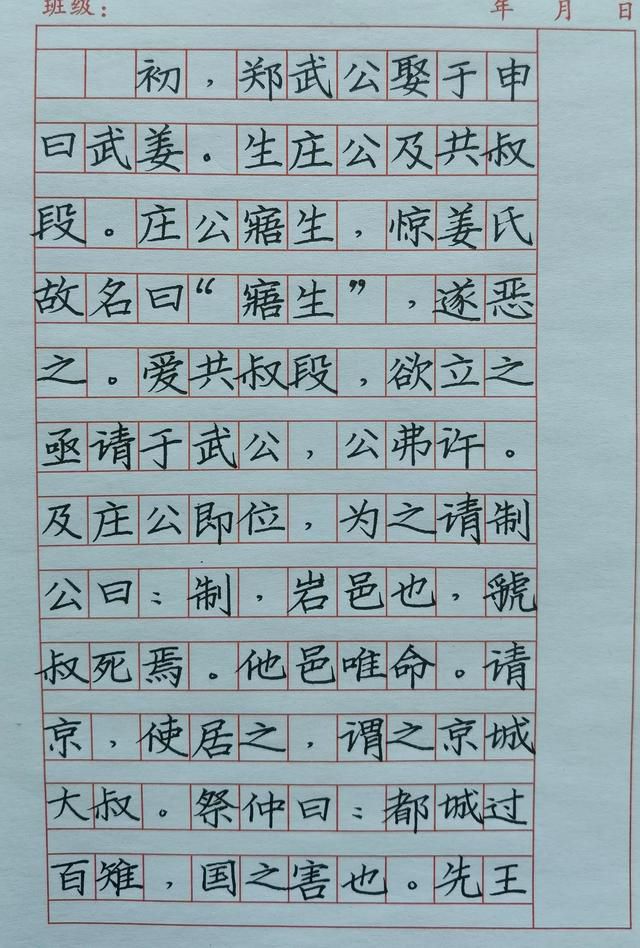 班级： 年 月 日
初，郑武公娶于申
曰武姜。生庄公及共叔
段。庄公寤生，惊姜氏
故名曰“寤生”，遂恶
之。爱共叔段，欲立之
亟请于武公，公弗许。
及庄公即位，为之请制
公曰：制，岩邑也，虢
叔死焉。他邑唯命。请
京，使居之，谓之京城
大叔。祭仲曰：都城过
百雉，国之害也。先王